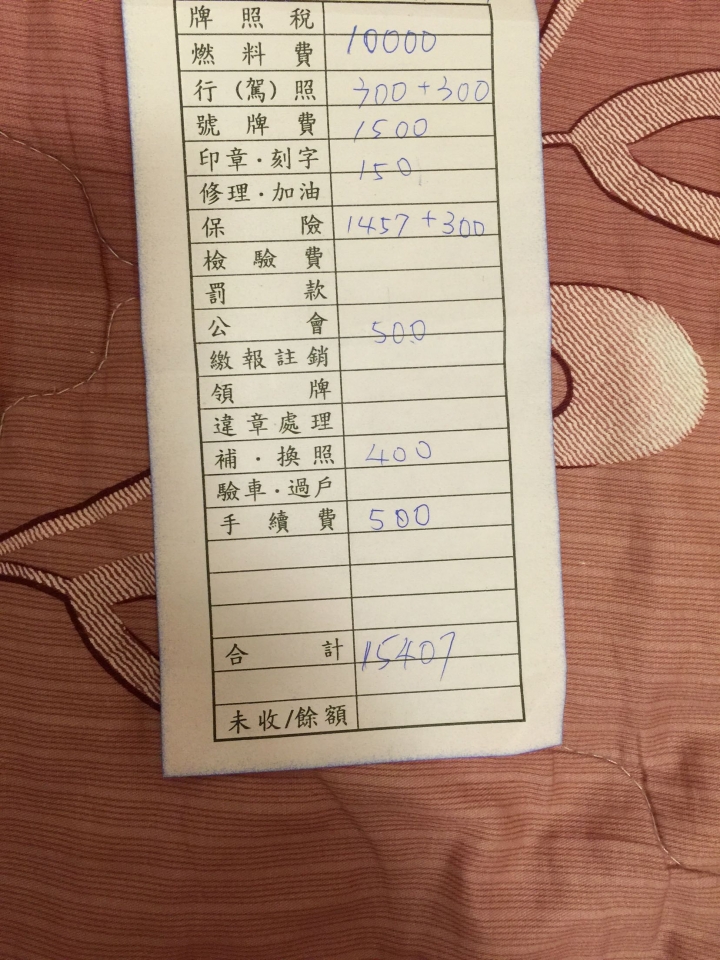 牌照稅
燃料費 10000
行(駕)照 300+300
號牌費 1500
印章·刻字 150
修理·加油
保險 1457+300
檢驗費
罰款
公會 500
繳報註銷
領牌
違章處理
補·換照 400
驗車·過戶
手續費 500
合計 15407
未收/餘額